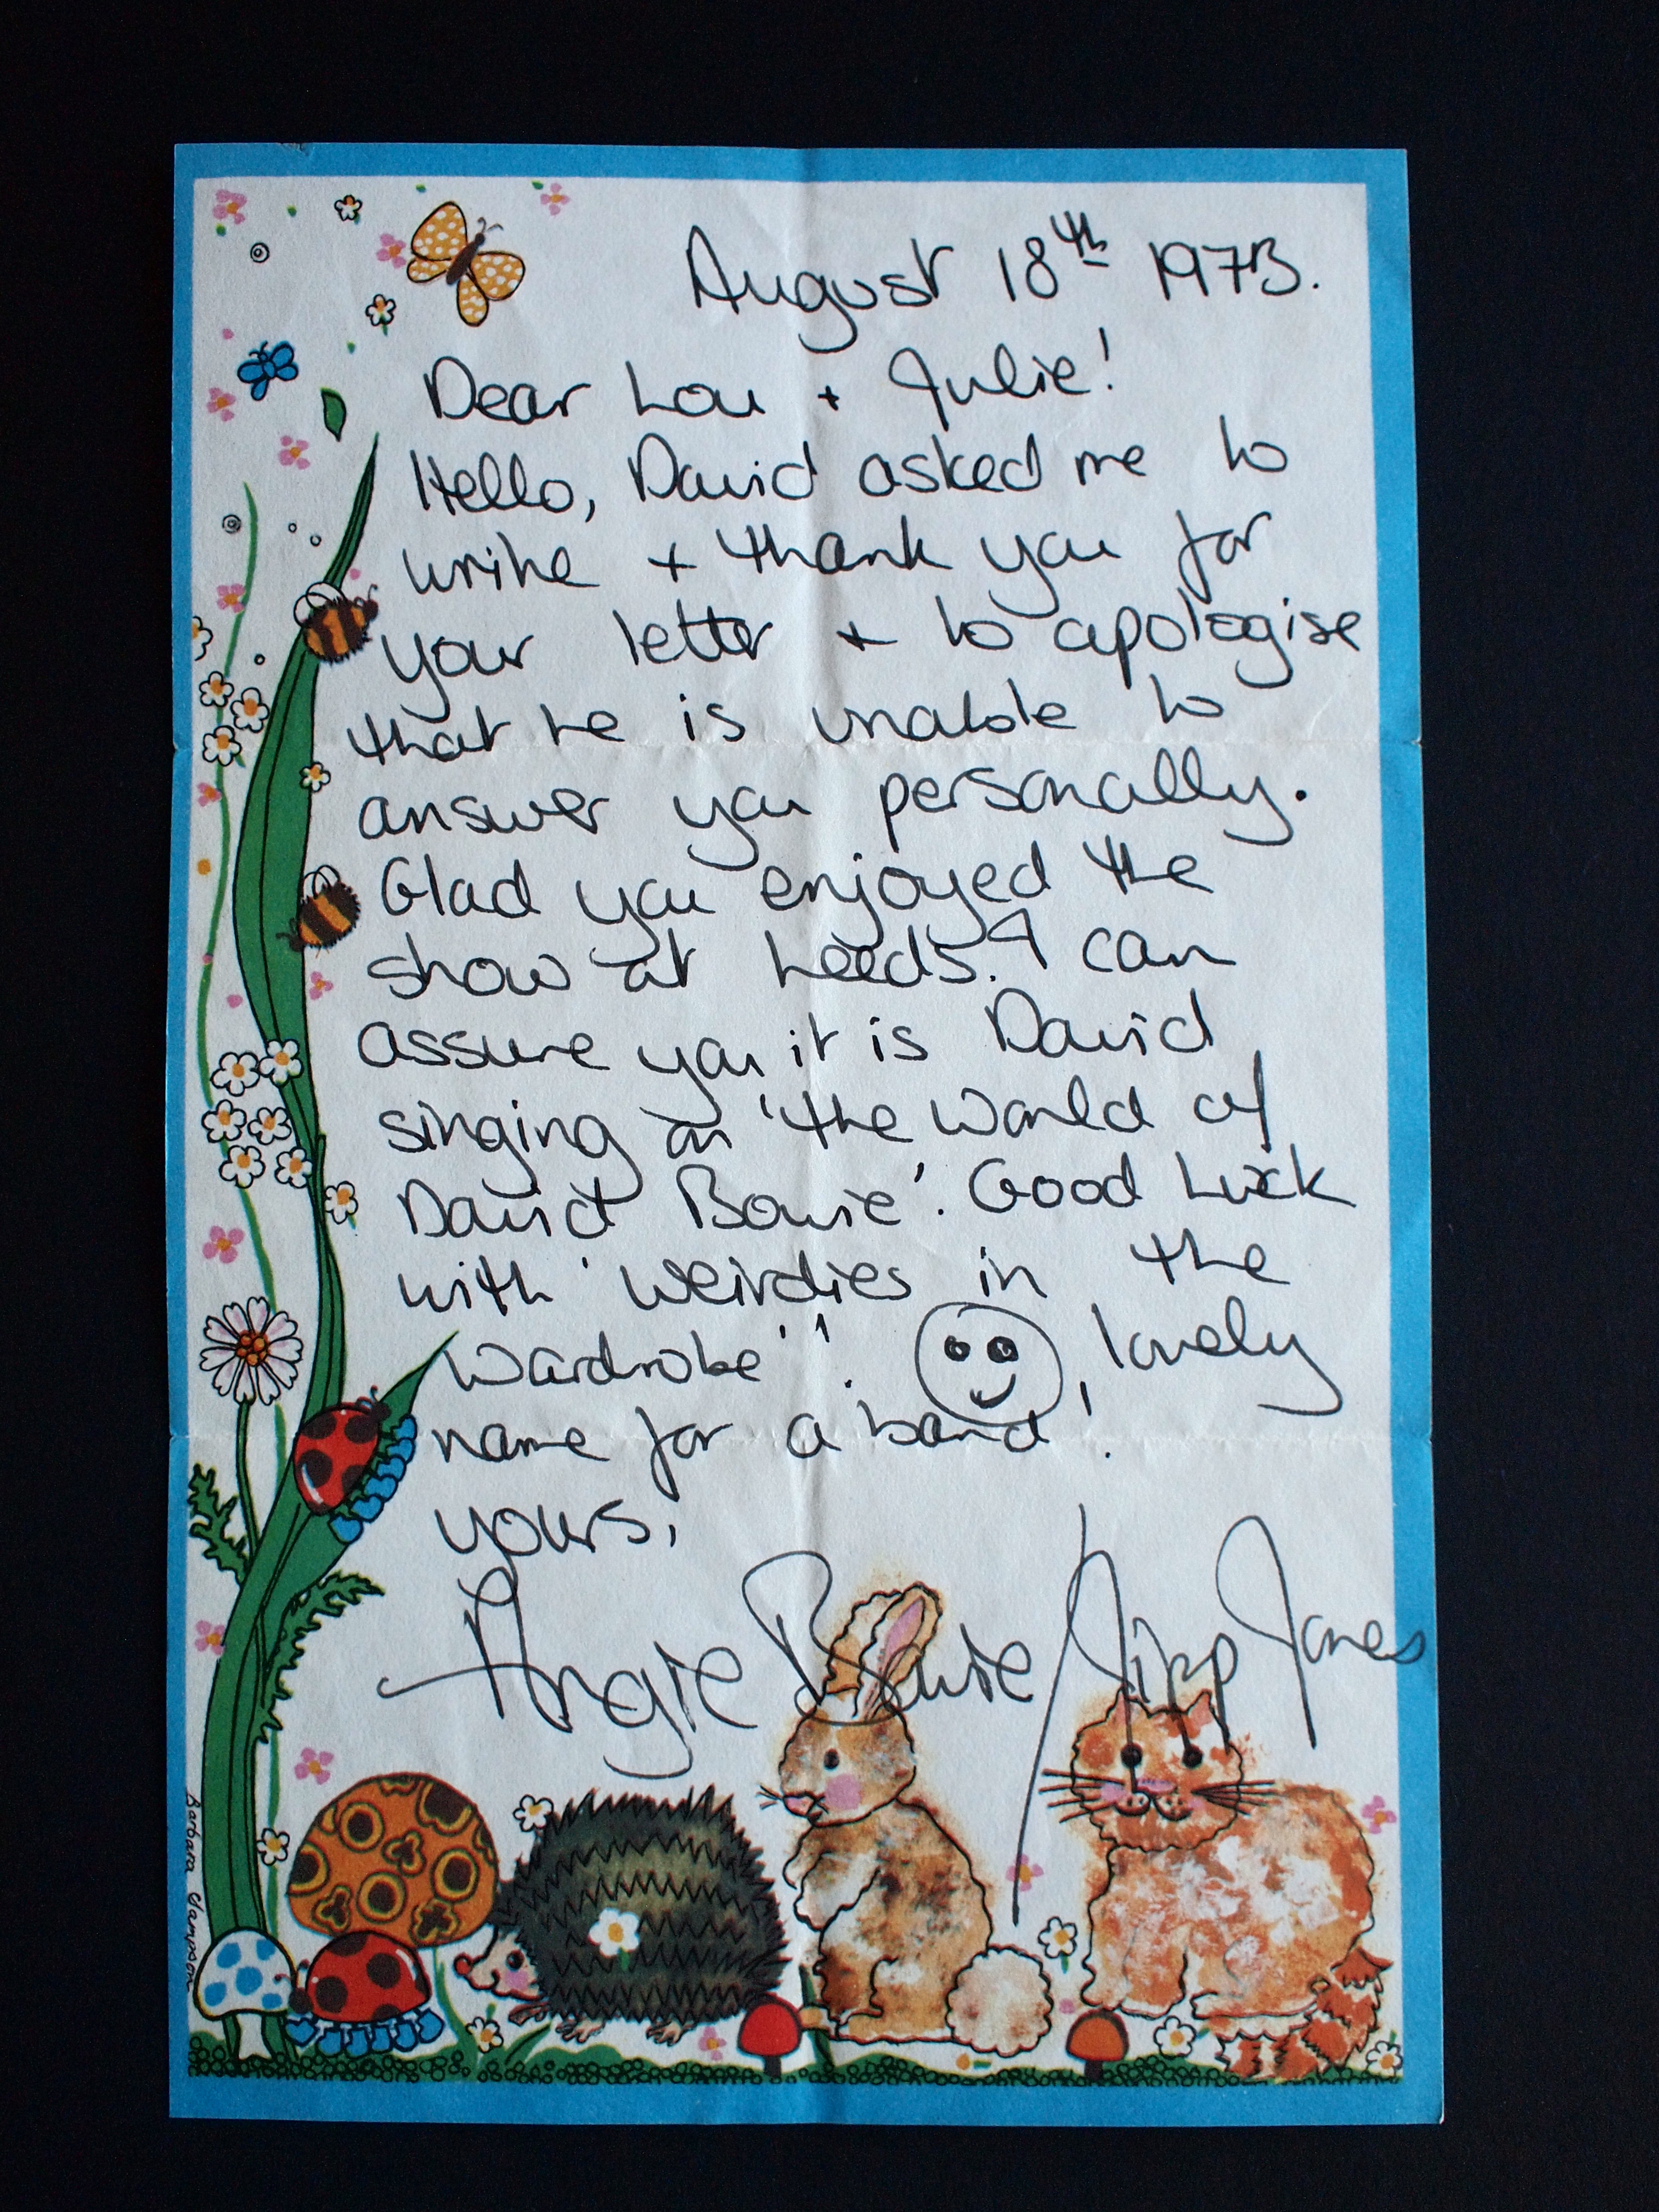 August 18th 1973.
Dear Lou + Julie!
Hello, David asked me to
write + thank you for
your letter + to apologise
that he is unable to
answer you personally.
Glad you enjoyed the
show at Leeds. I can
assure you it is David
singing on 'the World of
David Bowie'. Good Luck
with 'Weirdies in the
Wardrobe'! , lovely
name for a band!
yours,
Angie Bowie / Jipp Jones
Barbara